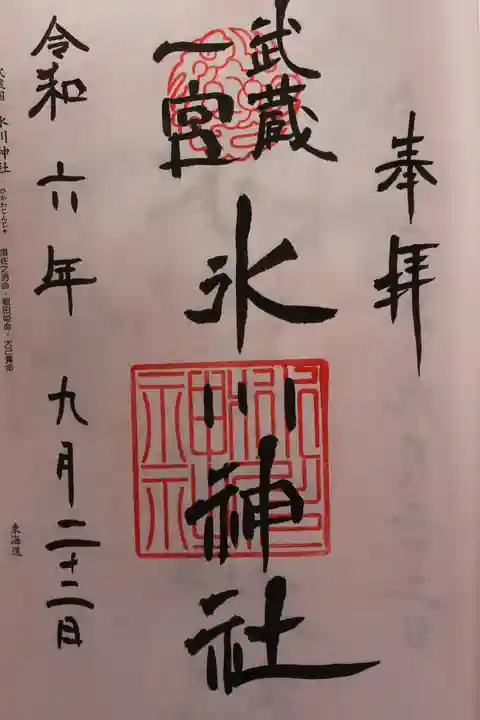 奉拝
武蔵
一宮
氷川神社
令和六年九月二十二日
武蔵国 氷川神社 ひかわじんじゃ 須佐之男命・稲田姫命・大己貴命
東海道